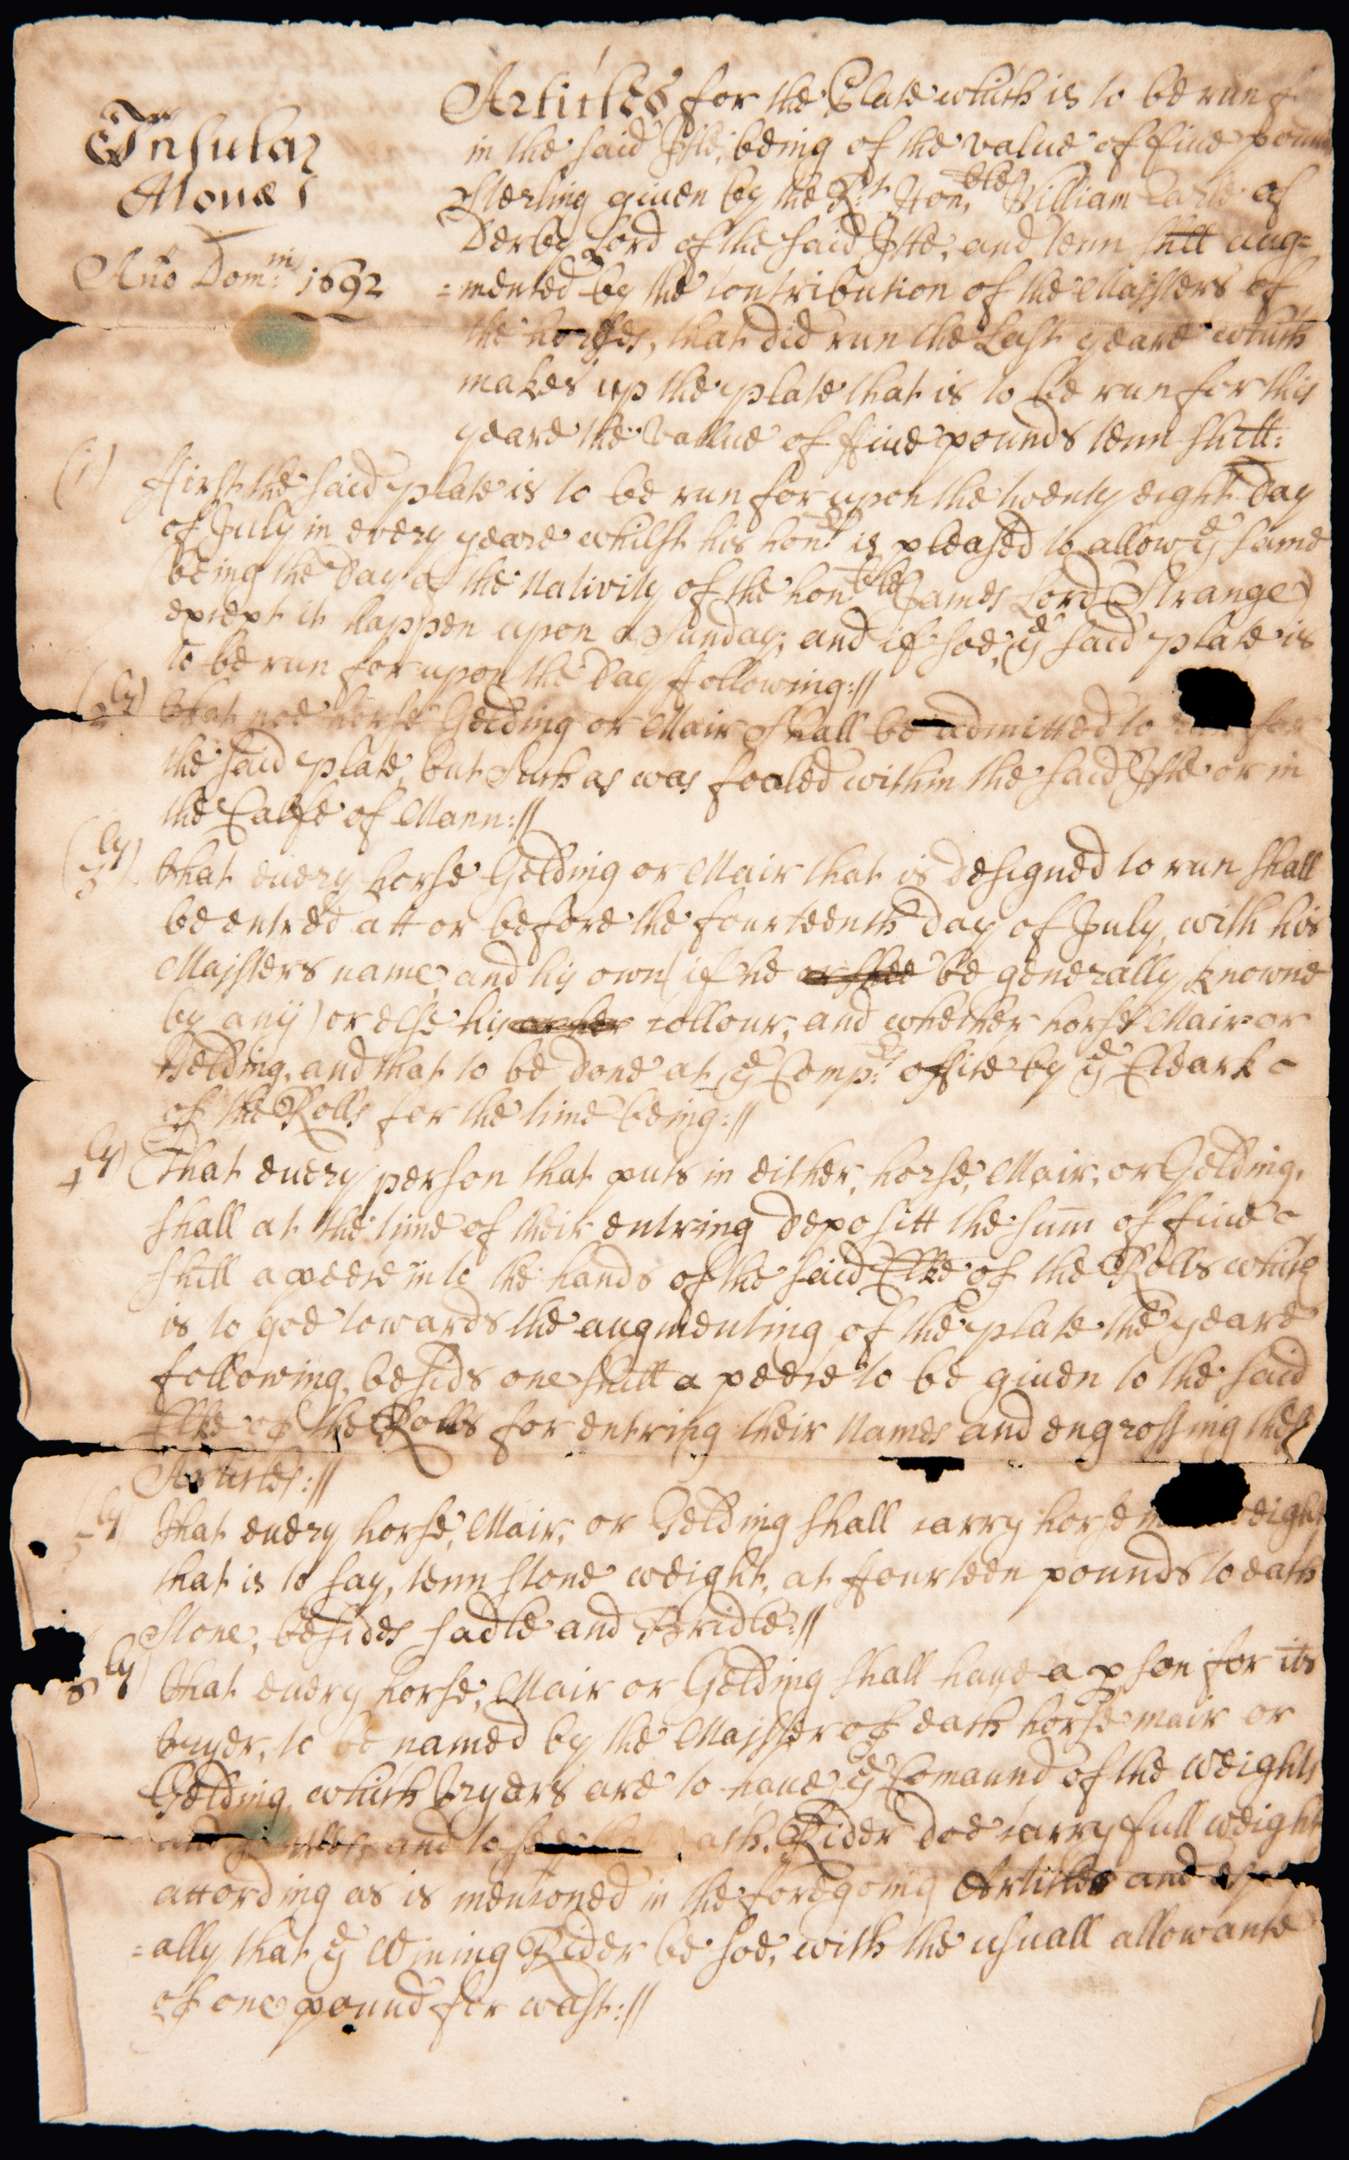 Insula
Monæ
Ano Dom:ni 1692
Articles for the Plate which is to be run for
in the said Isle, being of the value of five pounds
sterling given by the Rt. Honble William Earle of
Derby Lord of the said Isle, and tenn shill aug=
=mented by the contribution of the Maisters of
the horsses, that did run the Last yeare which
makes up the plate that is to be run for this
yeare the vallue of ffive pounds tenn shill:
(1) ffirst the said plate is to be run for upon the twenty eight Day
of July in every yeare whilst his honr. is pleased to allow ye same
being the Day of the Nativity of the honble James Lord Strange)
except it happen upon a sunday; and if soe, ye said plate is
to be run for upon the Day following://
(2ly) that noe horse Gelding or Mair shall be admitted to run for
the said plate, but such as was foaled within the said Isle or in
the Calfe of Mann://
(3ly) that every horse Gelding or Mair that is Designed to run shall
be entred att or before the fourteenth Day of July, with his
Maisters name and his own (if he or shee be generally knowne
by any) or else his or her collour, and whether horse Mair or
Gelding, and that to be Done at ye Compts. office by ye Cleark
of the Rolls for the time being://
4ly) That every person that puts in either, horse, Mair, or Gelding,
shall at the time of their entring Depositt the sum of five
shill a peece into the hands of the said Clke of the Rolls which
is to goe towards the augmenting of the plate the yeare
following, besids one shill a peece to be given to the said
Clke of the Rolls for entring their Names and engrossing thes
Articles://
5ly) that every horse, Mair, or Gelding shall carry horse eight
that is to say, tenn stone weight, at fourteen pounds to each
stone, besides sadle and Bridle://
6ly) that every horse, Mair or Gelding shall have a pson for its
tryer, to be named by the Maister of each horse mair or
Gelding, which tryers are to have ye Comaund of the weights
and and to see Rider doe carry full weight
according as is mencioned in the foregoing Articles and espe
=ally that ye Wining Rider be soe, with the usuall allowance
of one pound for wast://